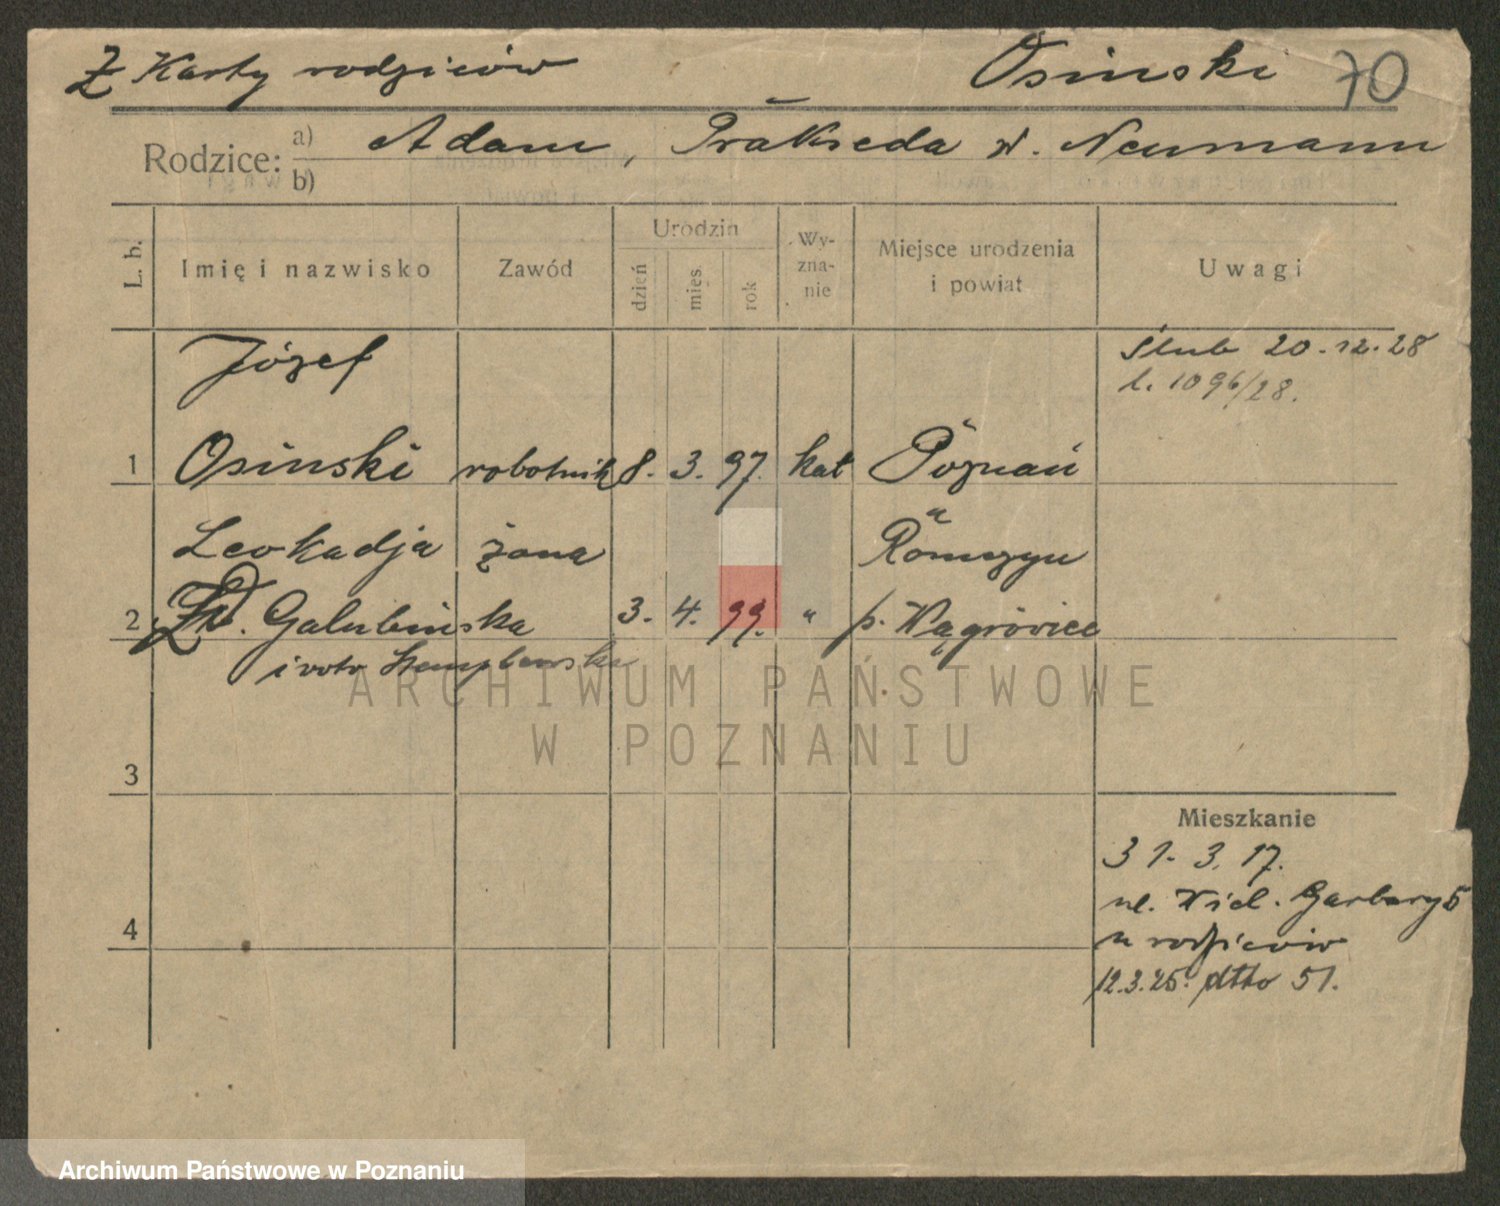 Z Karty rodziców Osinski 70
Rodzice: a) Adam, Prakseda d. Neumann
b)
L. b. Imię i nazwisko Zawód Urodzin dzień mies. rok Wy-zna-nie Miejsce urodzenia i powiat Uwagi
Józef
Ślub 20.12.28
l. 1096/28.
1 Osinski robotnik 8. 3. 97. kat Poznań
Leokadja żona
2 Galubinska 3. 4. 99. " p. Wągrówiec
i voto
ARCHIWUM PAŃSTWOWE
W POZNANIU
3
Mieszkanie
31. 3. 17.
ul. Wiel. Garbary 5
4 u rodziców
12.3.25. dtto 51.
Archiwum Państwowe w Poznaniu